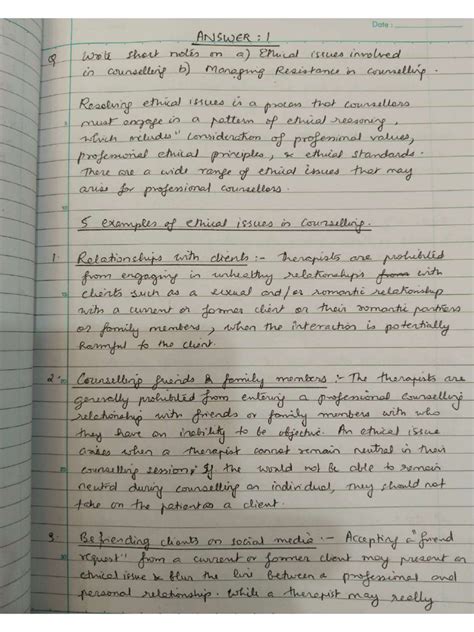 Date :
ANSWER : 1
Q Write short notes on a) Ethical issues involved
in counselling b) Managing Resistance in counselling.
Resolving ethical issues is a process that counsellors
must engage in a pattern of ethical reasoning,
which includes "consideration of professional values,
professional ethical principles, & ethical standards.
There are a wide range of ethical issues that may
arise for professional counsellors.
5 examples of ethical issues in Counselling.
1. Relationships with clients :- Therapists are prohibited
from engaging in unhealthy relationships from with
clients such as a sexual and/or romantic relationship
with a current or former client or their romantic partners
or family members, when the interaction is potentially
harmful to the client.
2. Counselling friends & family members :- The therapists are
generally prohibited from entering a professional counselling
relationship with friends or family members with who
they have an inability to be objective. An ethical issue
arises when a therapist cannot remain neutral in their
counselling session; If the would not be able to remain
neutral during counselling an individual, they should not
take on the patient as a client.
3. Befriending clients on social media :- Accepting a "friend
request" from a current or former client may present an
ethical issue & blur the line between a professional and
personal relationship. While a therapist may really